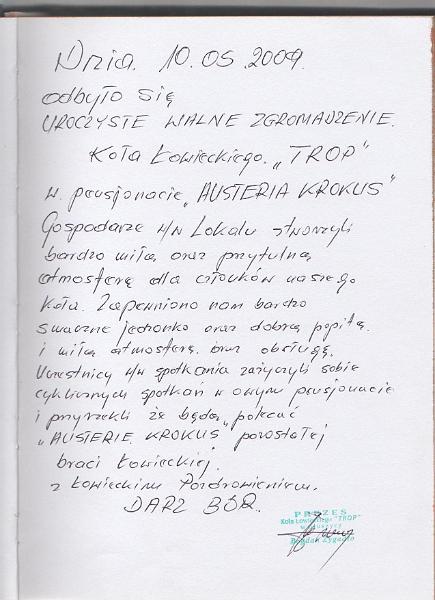 Dnia 10.05.2009.
odbyło się
UROCZYSTE WALNE ZGROMADZENIE.
Koła Łowieckiego. „TROP"
w. pensjonacie „AUSTERIA KROKUS"
Gospodarze w/w Lokalu stworzyli
bardzo miłą oraz przytulną
atmosferę dla członków naszego
Koła. Zapewniono nam bardzo
smaczne jedzonko oraz dobrą popitą.
i miłą atmosferę. oraz obsługę.
Uczestnicy w/w spotkania zażyczyli sobie
cyklicznych spotkań w owym pensjonacie
i przyrzekli że będą „polecać
„AUSTERIE KROKUS pozostałej
braci Łowieckiej.
z Łowieckim Pozdrowieniem.
DARZ BÓR.
PREZES
Koła Łowieckiego "TROP"
Bogdan Zygadło